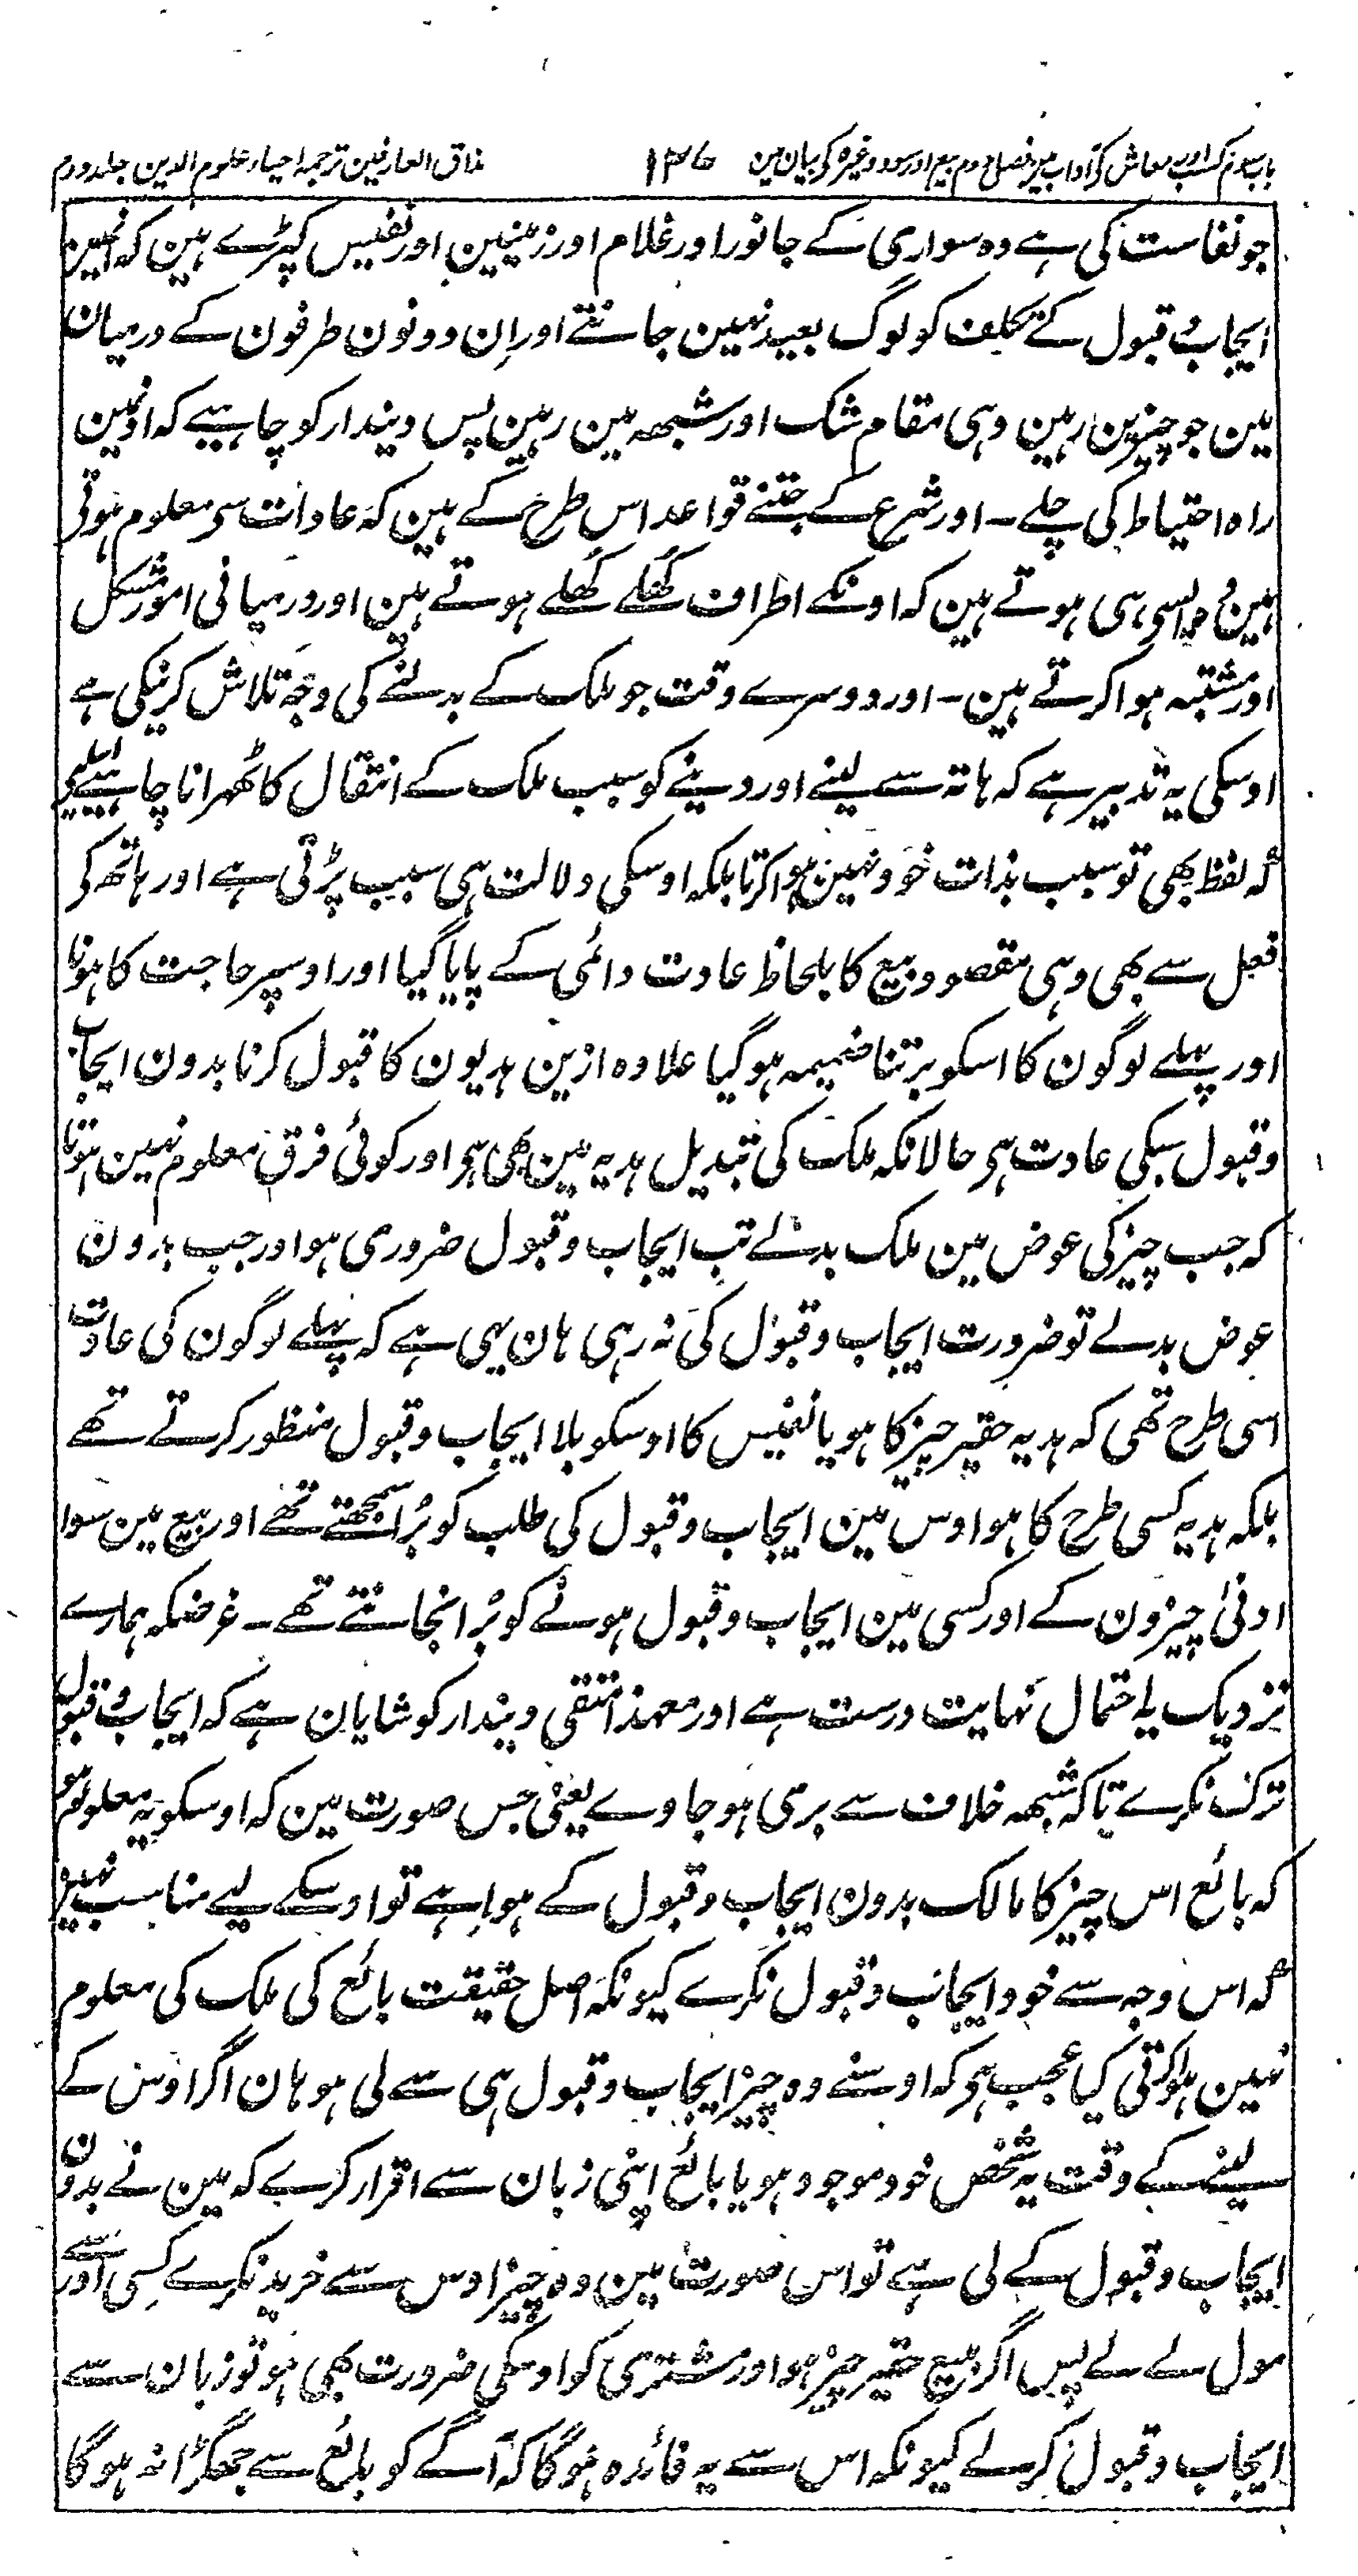 باب سوم کسب اور معاش کے آداب میں فصل دوم بیع اور سود وغیرہ کے بیان مین ۱۳۶ مذاق العارفین ترجمہ احیاء علوم الدین جلد دوم
جو نفاست کی ہے وہ سواری کے جانور اور غلام اور زمینین اور نفیس کپڑے ہین کہ انمین
ایجاب و قبول کے تکلف کو لوگ بعید نہین جانتے اور ان دونون طرفون کے درمیان
مین جو چیزین رہین وہی مقام شک اور شبہہ مین رہین پس دیندار کو چاہیے کہ اونمین
راہ احتیاط کی چلے ۔ اور شرع کے جتنے قواعد اس طرح کے ہین کہ عادات سی معلوم ہوتی
ہین وہ ایسی ہی ہوتے ہین کہ اونکے اطراف کُھلے کُھلے ہوتے ہین اور درمیانی امور مشکل
اور مشتبہ ہوا کرتے ہین ۔ اور دوسرے وقت جو ملک کے بدلنے کی وجہ تلاش کرنیکی ہے
اوسکی یہ تدبیر ہے کہ ہاتہ سے لینے اور دینے کو سبب ملک کے انتقال کا ٹھہرانا چاہیے اسلیے
کہ لفظ بھی تو سبب بذات خود نہین ہوا کرتا بلکہ اوسکی دلالت ہی سبب پڑتی ہے اور ہاتھ کر
فعل سے بھی وہی مقصود بیع کا بلحاظ عادت دائمی کے پایا گیا اور اوسپر حاجت کا ہونا
اور پہلے لوگون کا اسکو برتنا ضمیمہ ہوگیا علاوہ ازین ہدیون کا قبول کرنا بدون ایجاب
و قبول سبکی عادت ہی حالانکہ ملک کی تبدیل ہدیہ مین بھی ہی اور کوئی فرق معلوم نہین ہوتا
کہ جب چیز کی عوض مین ملک بدلے تب ایجاب و قبول ضروری ہو اور جب بدون
عوض بدلے تو ضرورت ایجاب و قبول کی نہ رہی ہان یہی ہے کہ پہلے لوگون کی عادت
اسی طرح تھی کہ ہدیہ حقیر چیز کا ہو یا نفیس کا اوسکو بلا ایجاب و قبول منظور کرتے تھے
بلکہ ہدیہ کسی طرح کا ہو اوس مین ایجاب و قبول کی طلب کو بُرا سمجھتے تھے اور بیع مین سوا
ادنیٰ چیزون کے اور کسی مین ایجاب و قبول ہونے کو بُرا نجانتے تھے ۔ غرضکہ ہمارے
نزدیک یہ احتمال نہایت درست ہے اور معہذا متقی دیندار کو شایان ہے کہ ایجاب و قبول
ترک نکرے تاکہ شبہہ خلاف سے بری ہو جاوے یعنی جس صورت مین کہ اوسکو یہ معلوم ہو
کہ بائع اس چیز کا مالک بدون ایجاب و قبول کے ہوا ہے تو اوسکے لیے مناسب نہین
کہ اس وجہ سے خود ایجاب و قبول نکرے کیونکہ اصل حقیقت بائع کی ملک کی معلوم
نہین ہوا کرتی کیا عجب ہی کہ اوسنے وہ چیز ایجاب و قبول ہی سے لی ہو ہان اگر اوس کے
لینے کے وقت یہ شخص خود موجود ہو یا بائع اپنی زبان سے اقرار کرے کہ مین نے بدون
ایجاب و قبول کے لی ہے تو اس صورت مین وہ چیز اوس سے خرید نکرے کسی اور سے
مول لے لے پس اگر مبیع حقیر چیز ہو اور مشتری کو اوسکی ضرورت بھی ہو تو زبان سے
ایجاب و قبول کرلے کیونکہ اس سے یہ فائدہ ہوگا کہ آگے کو بائع سے جھگڑا نہ ہوگا